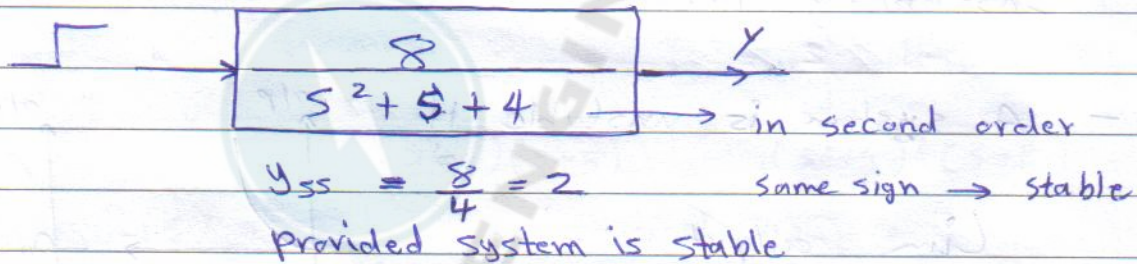 8
S² + S + 4 → in second order
Y
yss = 8/4 = 2 same sign → stable
provided system is stable